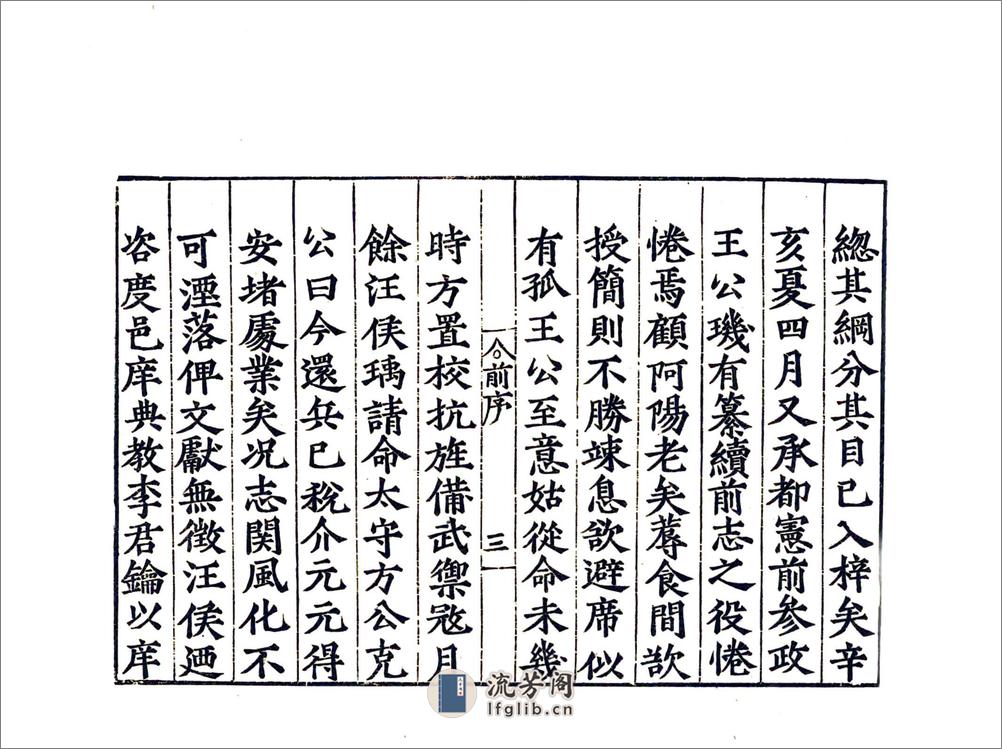 總其綱分其目已入梓矣辛
亥夏四月又承都憲前參政
王公璣有纂續前志之役惓
惓焉顧阿陽老矣蓐食間歆
授簡則不勝竦息欲避席似
有孤王公至意姑從命未幾
仝前序 三
時方置校抗旌備武禦寇月
餘汪侯瑀請命太守方公克
公曰今還兵已稅介元元得
安堵處業矣况志関風化不
可湮落俾文獻無徵汪侯迺
咨度邑庠典教李君鑰以庠
流芳阁
lfglib.cn